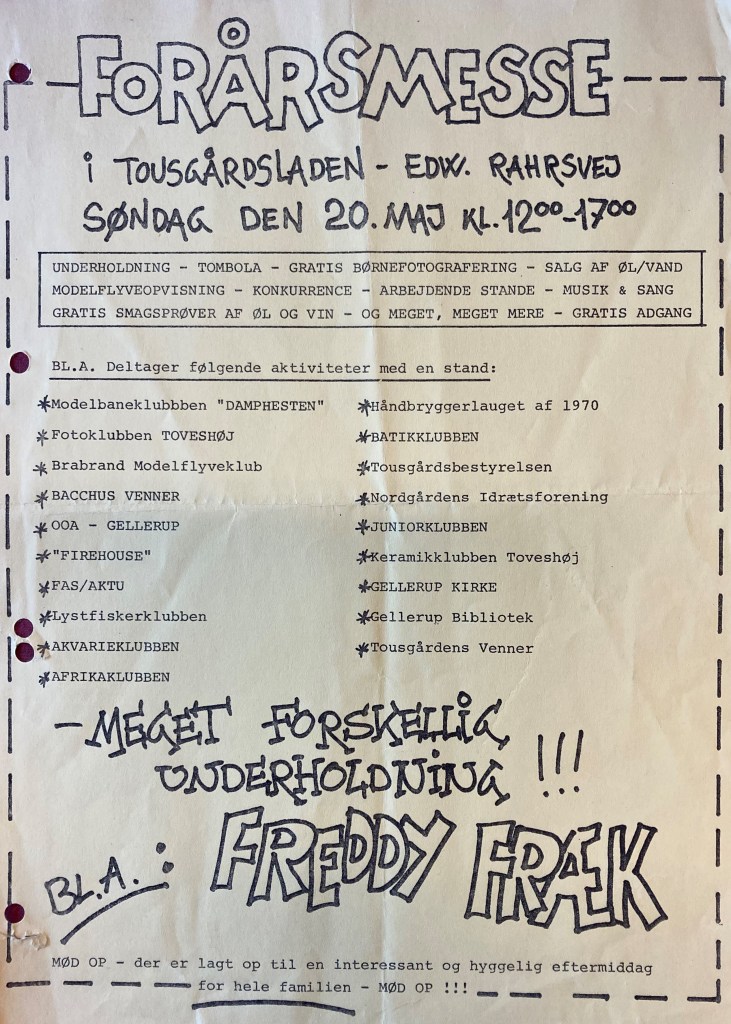 FORÅRSMESSE
i TOUSGÅRDSLADEN - EDW. RAHRSVEJ
SØNDAG DEN 20. MAJ KL. 12⁰⁰-17⁰⁰
UNDERHOLDNING - TOMBOLA - GRATIS BØRNEFOTOGRAFERING - SALG AF ØL/VAND
MODELFLYVEOPVISNING - KONKURRENCE - ARBEJDENDE STANDE - MUSIK & SANG
GRATIS SMAGSPRØVER AF ØL OG VIN - OG MEGET, MEGET MERE - GRATIS ADGANG
BL.A. Deltager følgende aktiviteter med en stand:
*Modelbaneklubbben "DAMPHESTEN"
*Fotoklubben TOVESHØJ
*Brabrand Modelflyveklub
*BACCHUS VENNER
*OOA - GELLERUP
*"FIREHOUSE"
*FAS/AKTU
*Lystfiskerklubben
*AKVARIEKLUBBEN
*AFRIKAKLUBBEN
*Håndbryggerlauget af 1970
*BATIKKLUBBEN
*Tousgårdsbestyrelsen
*Nordgårdens Idrætsforening
*JUNIORKLUBBEN
*Keramikklubben Toveshøj
*GELLERUP KIRKE
*Gellerup Bibliotek
*Tousgårdens Venner
- MEGET FORSKELLIG
UNDERHOLDNING !!!
BL.A. : FREDDY FRÆK
MØD OP - der er lagt op til en interessant og hyggelig eftermiddag
for hele familien - MØD OP !!!